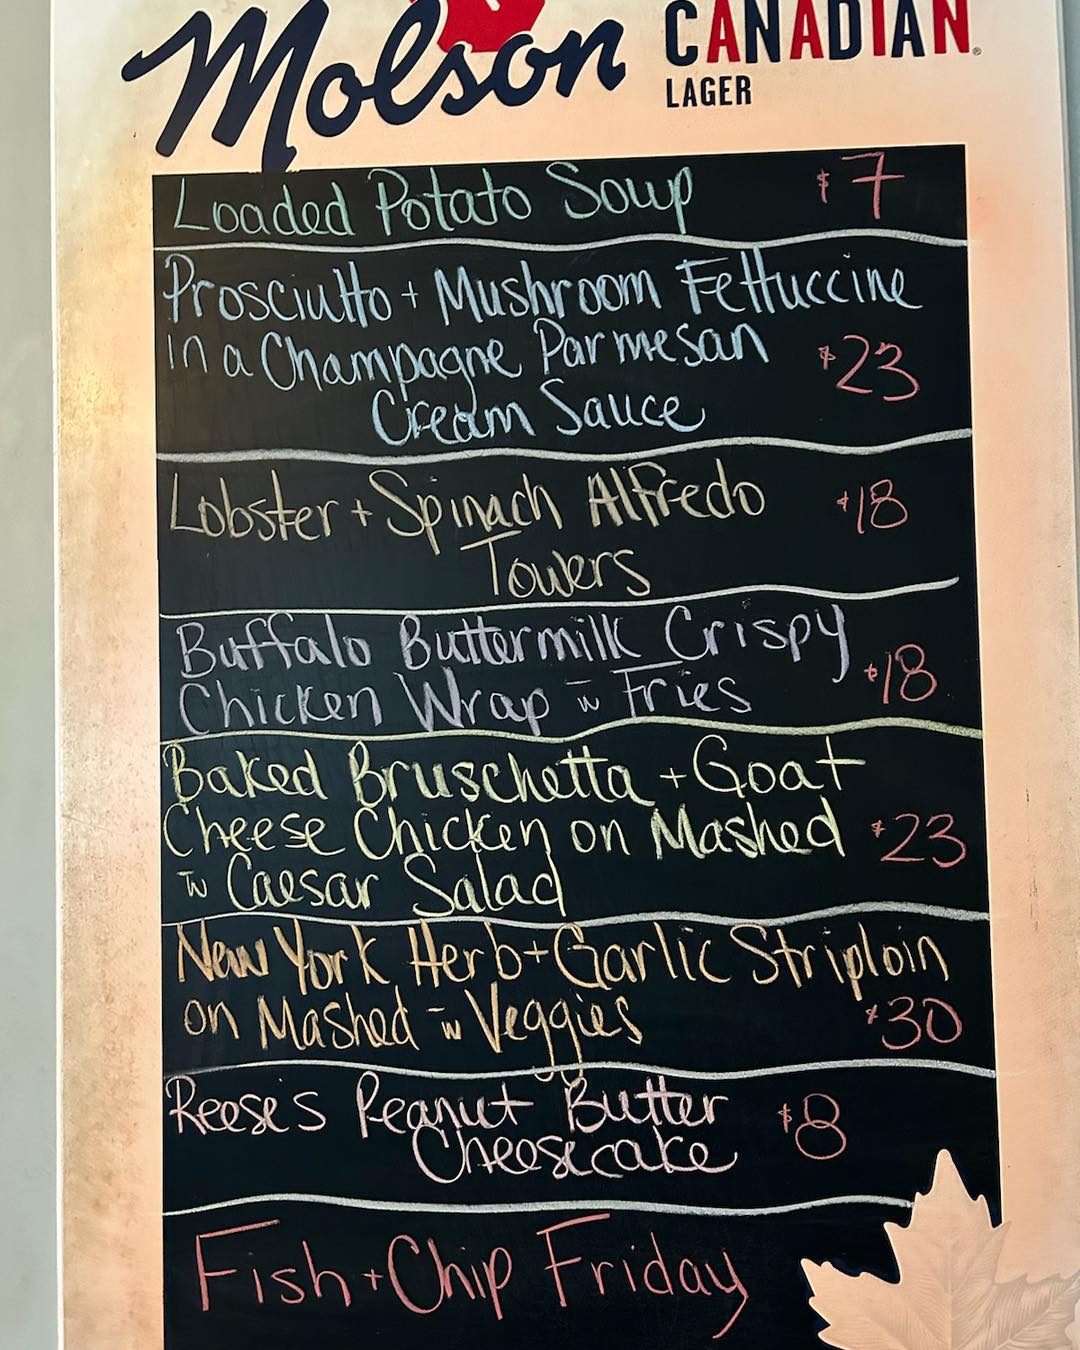 Molson CANADIAN
LAGER
Loaded Potato Soup $7
Prosciutto + Mushroom Fettuccine
in a Champagne Parmesan $23
Cream Sauce
Lobster + Spinach Alfredo $18
Towers
Buffalo Buttermilk Crispy
Chicken Wrap w Fries $18
Baked Bruschetta + Goat
Cheese Chicken on Mashed $23
w Caesar Salad
New York Herb + Garlic Striploin
on Mashed w Veggies $30
Reese's Peanut Butter $8
Cheesecake
Fish + Chip Friday